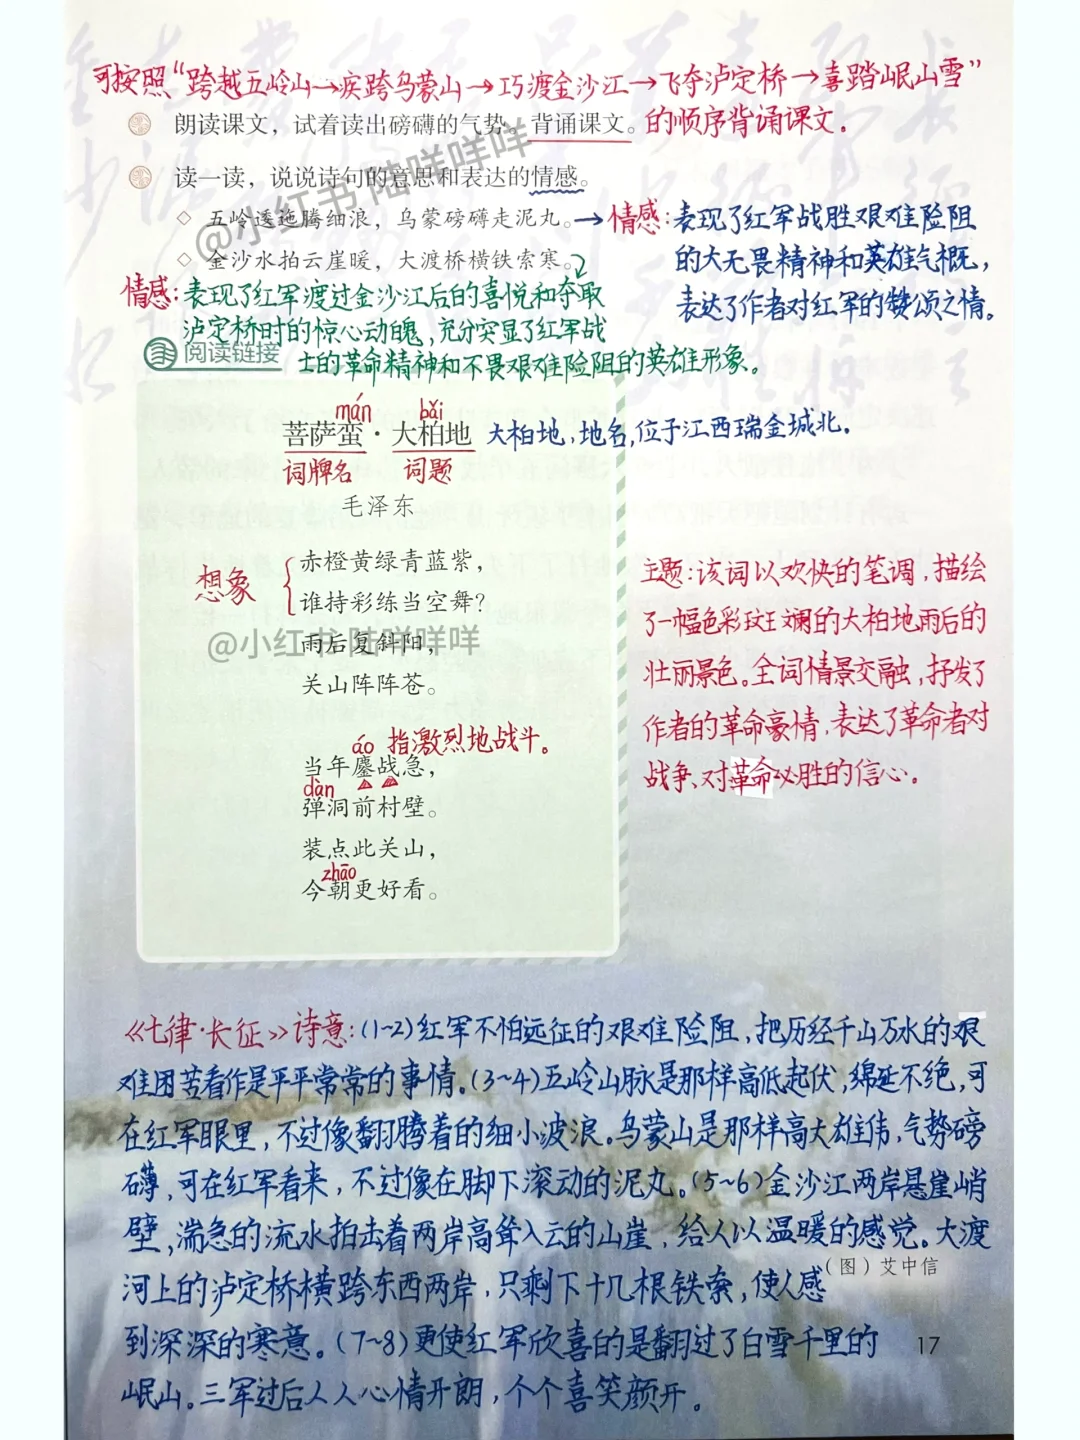 可按照“跨越五岭山→疾跨乌蒙山→巧渡金沙江→飞夺泸定桥→喜踏岷山雪”
朗读课文，试着读出磅礴的气势。背诵课文。的顺序背诵课文.
读一读，说说诗句的意思和表达的情感。
@小红书 陆咩咩咩
◇ 五岭逶迤腾细浪，乌蒙磅礴走泥丸。→情感:表现了红军战胜艰难险阻
的大无畏精神和英雄气概，
表达了作者对红军的赞颂之情。
◇ 金沙水拍云崖暖，大渡桥横铁索寒。
情感:表现了红军渡过金沙江后的喜悦和夺取
泸定桥时的惊心动魄,充分突显了红军战
士的革命精神和不畏艰难险阻的英雄形象。
阅读链接
mán bǎi
菩萨蛮·大柏地 大柏地,地名,位于江西瑞金城北.
词牌名 词题
毛泽东
赤橙黄绿青蓝紫，
想象
谁持彩练当空舞？
@小红书 陆咩咩咩
雨后复斜阳，
关山阵阵苍。
áo 指激烈地战斗。
当年鏖战急，
dàn
弹洞前村壁。
装点此关山，
zhāo
今朝更好看。
主题:该词以欢快的笔调,描绘
了一幅色彩斑斓的大柏地雨后的
壮丽景色。全词情景交融,抒发了
作者的革命豪情,表达了革命者对
战争、对革命必胜的信心。
《七律·长征》诗意:(1~2)红军不怕远征的艰难险阻,把历经千山万水的艰
难困苦看作是平平常常的事情.(3~4)五岭山脉是那样高低起伏,绵延不绝,可
在红军眼里,不过像翻腾着的细小波浪。乌蒙山是那样高大雄伟,气势磅
礴,可在红军看来,不过像在脚下滚动的泥丸。(5~6)金沙江两岸悬崖峭
壁,湍急的流水拍击着两岸高耸入云的山崖,给人以温暖的感觉。大渡
（图）艾中信
河上的泸定桥横跨东西两岸,只剩下十几根铁索,使人感
到深深的寒意。(7~8)更使红军欣喜的是翻过了白雪千里的
17
岷山。三军过后人人心情开朗,个个喜笑颜开.